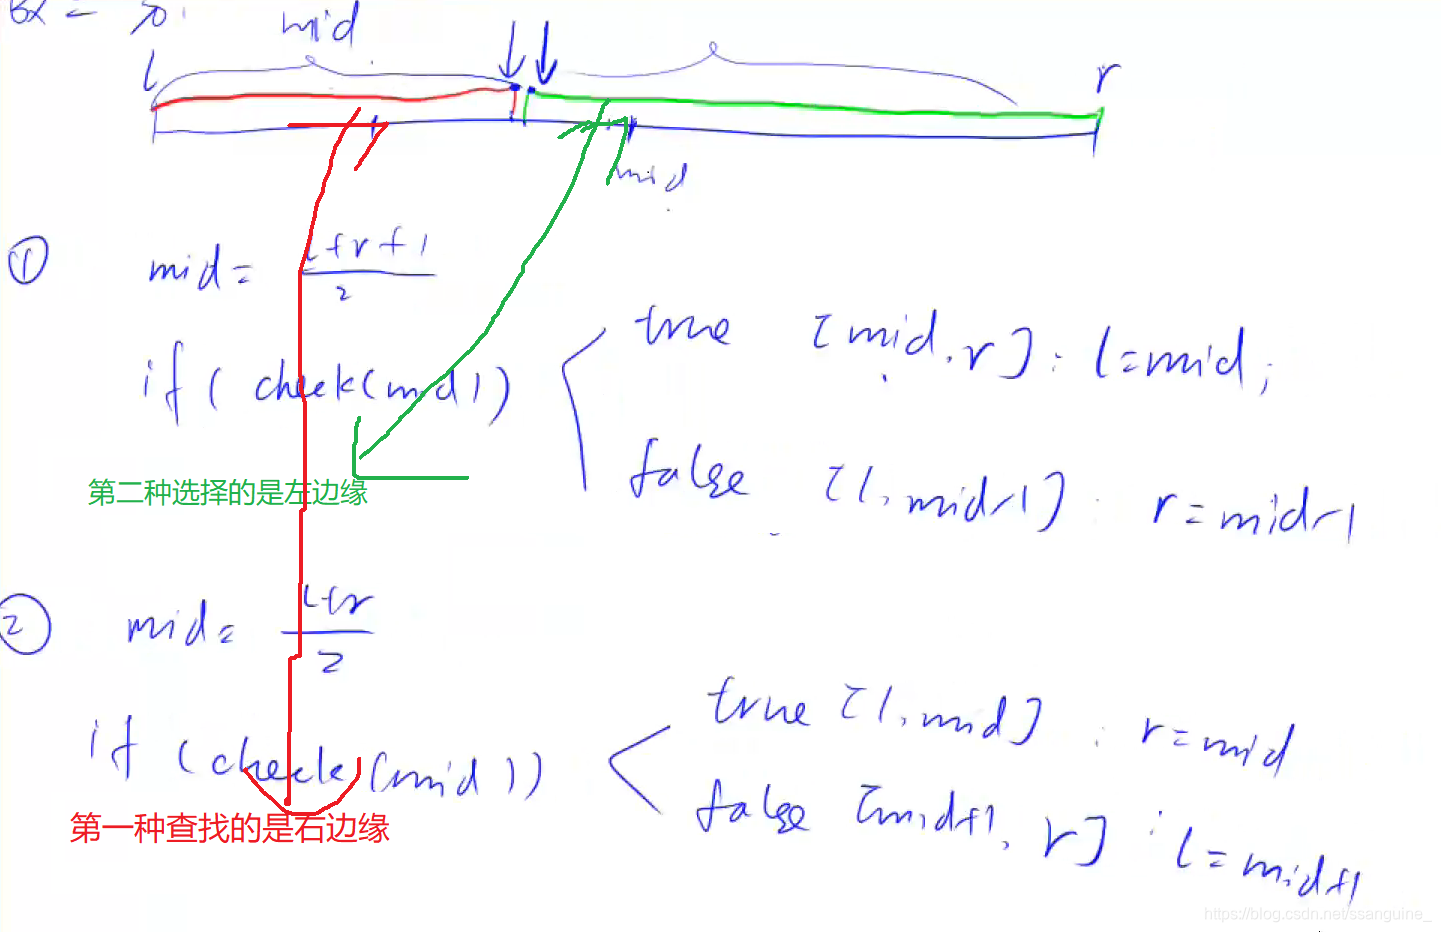 mid
l
r
mid
① mid = l+r+1 / 2
if (check(mid)) true [mid, r] : l=mid;
false [l, mid-1] : r=mid-1
第二种选择的是左边缘
② mid = l+r / 2
if (check(mid)) true [l, mid] : r=mid
false [mid+1, r] : l=mid+1
第一种查找的是右边缘
https://blog.csdn.net/ssanguine_